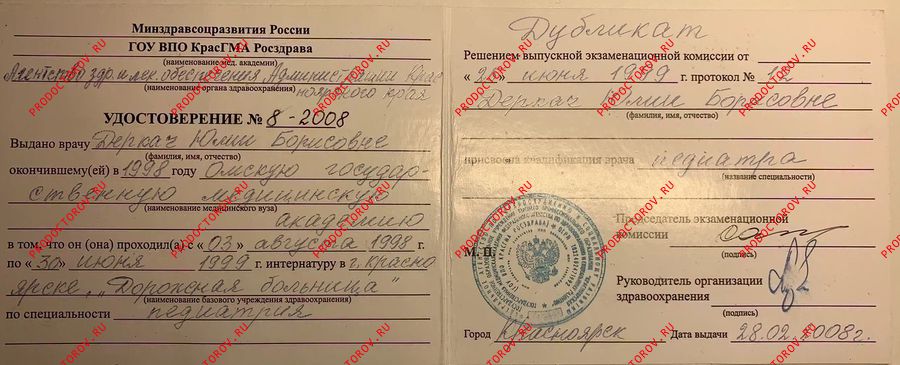 Минздравсоцразвития России
ГОУ ВПО КрасГМА Росздрава
(наименование мед. академии)
Агентство здр. и лек. обеспечения Администрации Крас
(наименование органа здравоохранения)
ноярского края
УДОСТОВЕРЕНИЕ № 8-2008
Выдано врачу Деркач Юлии Борисовне
(фамилия, имя, отчество)
окончившему(ей) в 1998 году Омскую государ-
ственную медицинскую
(наименование медицинского вуза)
академию
в том, что он (она) проходил(а) с «03» августа 1998 г.
по «30» июня 1999 г. интернатуру в г. Красно
ярске, "Дорожная больница"
(наименование базового учреждения здравоохранения)
по специальности педиатрия
Дубликат
Решением выпускной экзаменационной комиссии от
« » июня 1999 г. протокол № 12
Деркач Юлии Борисовне
(фамилия, имя, отчество)
присвоена квалификация врача педиатра
(название специальности)
Председатель экзаменационной
комиссии
(подпись)
М. П.
Руководитель организации
здравоохранения
(подпись)
Город Красноярск Дата выдачи 28.02.2008г.
PRODOCTOROV.RU